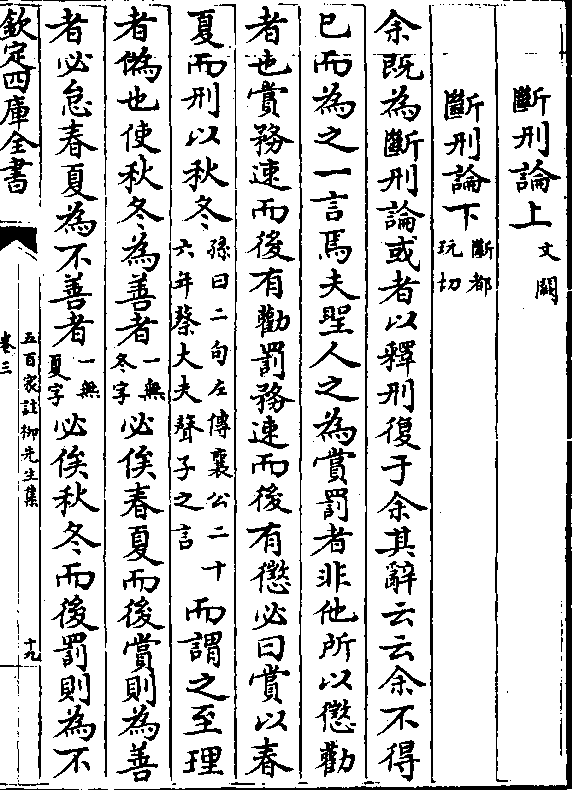 斷刑論上文闕
斷刑論下斷都玩切
余既為斷刑論或者以釋刑復于余其辭云云余不得
已而為之一言焉夫聖人之為賞罰者非他所以懲勸
者也賞務速而後有勸罰務速而後有懲必曰賞以春
夏而刑以秋冬孫曰二句左傳襄公二十六年蔡大夫聲子之言而謂之至理
者偽也使秋冬為善者一無冬字必俟春夏而後賞則為善
者必怠春夏為不善者一無夏字必俟秋冬而後罰則為不
欽定四庫全書
五百家註柳先生集
卷三
十九